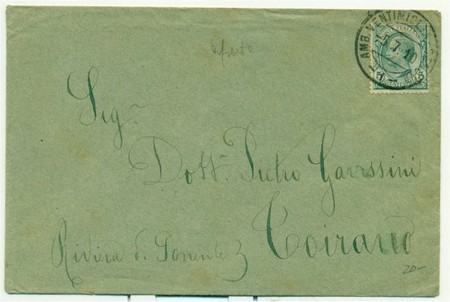 AMB. VENTIMI
7.10
Sig.r
Dott. Pietro Garassini
Toirano
Riviera di Ponente
20-